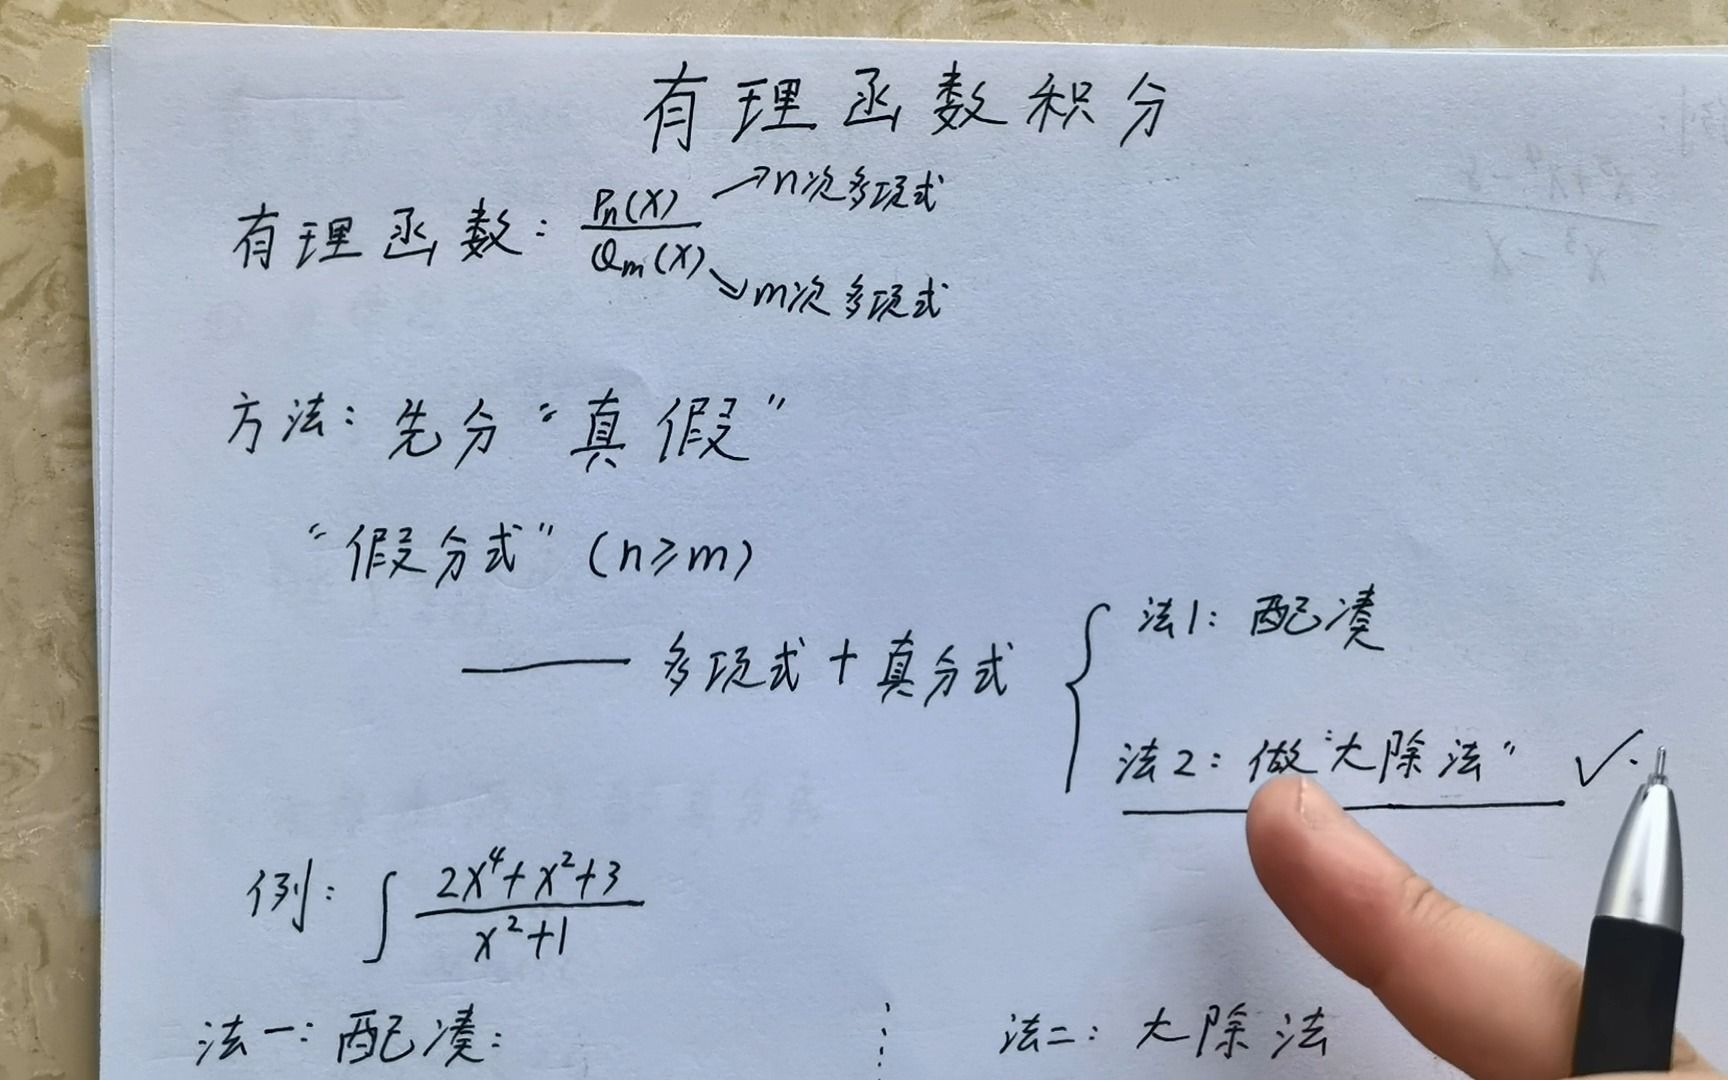 有理函数积分
有理函数: Pn(x)/Qm(x)
→n次多项式
↘m次多项式
方法: 先分“真假”
“假分式” (n≥m)
—— 多项式+真分式
法1: 配凑
法2: 做“大除法” ✓
例: ∫ (2x⁴+x²+3)/(x²+1)
法一: 配凑:
法二: 大除法